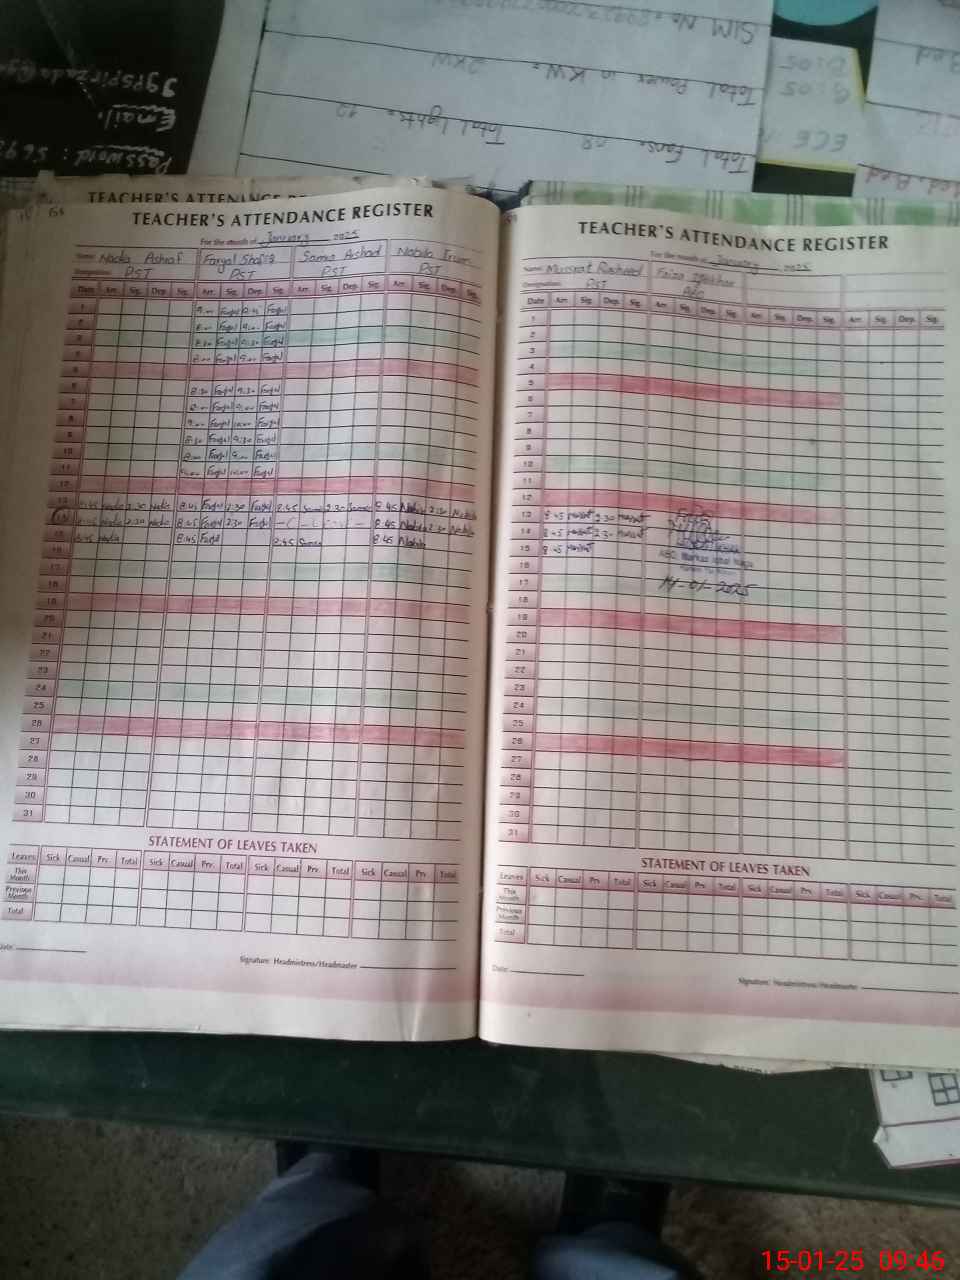 SIM No =
Total Power in KW = 2KW
Total Fans = 08 Total lights = 12
ECE
8:05
Email:
Password: 569
TEACHER'S ATTENDANCE REGISTER
For the month of January 2025
Name Nadia Ashraf Faryal Shafiq Samia Arshad Nabila Irum
Designation PST PST PST PST
Date Arr. Sig. Dep. Sig. Arr. Sig. Dep. Sig. Arr. Sig. Dep. Sig. Arr. Sig. Dep. Sig.
1 9:00 Faryal 2:45 Faryal
2 8:00 Faryal 9:00 Faryal
3 8:30 Faryal 9:30 Faryal
4 8:00 Faryal 9:00 Faryal
5
6 8:30 Faryal 9:30 Faryal
7 8:00 Faryal 9:00 Faryal
8 9:00 Faryal 10:00 Faryal
9 8:30 Faryal 9:30 Faryal
10 8:00 Faryal 9:00 Faryal
11 Faryal 10:00 Faryal
12
13 8:45 Nadia 2:30 Nadia 8:45 Faryal 2:30 Faryal 8:45 Samia 2:30 Samia 8:45 Nabila 2:30 Nabila
14 8:45 Nadia 2:30 Nadia 8:45 Faryal 2:30 Faryal 8:45 Nabila 2:30 Nabila
15 8:45 Nadia 8:45 Faryal 8:45 Samia 8:45 Nabila
16
17
18
19
20
21
22
23
24
25
26
27
28
29
30
31
STATEMENT OF LEAVES TAKEN
Leaves Sick Casual Prv. Total Sick Casual Prv. Total Sick Casual Prv. Total Sick Casual Prv. Total
This Month
Previous Month
Total
Date:
Signature: Headmistress/Headmaster
TEACHER'S ATTENDANCE REGISTER
For the month of January 2025
Name Mussrat Rasheed Faiza Iftikhar
Designation PST AEO
Date Arr. Sig. Dep. Sig. Arr. Sig. Dep. Sig. Arr. Sig. Dep. Sig. Arr. Sig. Dep. Sig.
1
2
3
4
5
6
7
8
9
10
11
12
13 8:45 Musrat 2:30 Musrat
14 8:45 Musrat 2:30 Musrat
15 8:45 Musrat
16
17
14-01-2025
18
19
20
21
22
23
24
25
26
27
28
29
30
31
STATEMENT OF LEAVES TAKEN
Leaves Sick Casual Prv. Total Sick Casual Prv. Total Sick Casual Prv. Total Sick Casual Prv. Total
This Month
Previous Month
Total
Date:
Signature: Headmistress/Headmaster
15-01-25 09:46